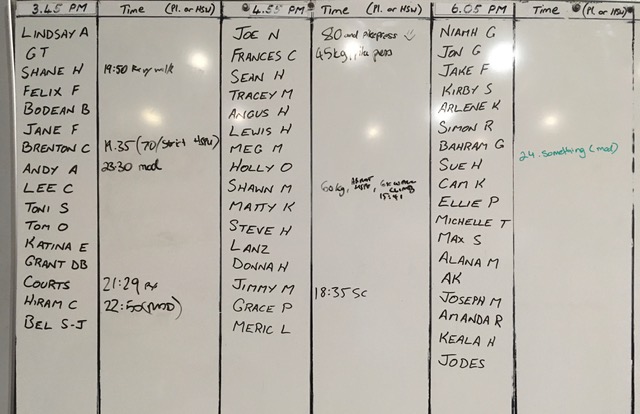 3.45 PM Time (Pl. or HSW) 4.55 PM Time (Pl. or HSW) 6.05 PM Time (Pl. or HSW)
LINDSAY A JOE N 80 and pikepress NIAMH G
GT FRANCES C 45kg, pike press JON G
SHANE H 19:50 SEAN H JAKE F
FELIX F TRACEY M KIRBY S
BODEAN B ANGUS H ARLENE K
JANE F LEWIS H SIMON R
BRENTON C 19.35 (70/strict HSPU) MEG M BAHRAM G
ANDY A 23:30 mod HOLLY O SUE H 24.something (mod)
LEE C SHAWN M 60kg, CAM K
TONI S MATTY K ELLIE P
TOM O STEVE H MICHELLE T
KATINA E LANZ MAX S
GRANT DB DONNA H ALANA M
COURTS 21:29 Rx JIMMY M 18:35 SC AK
HIRAM C 22:50 (MOD) GRACE P JOSEPH M
BEL S-J MERIC L AMANDA R
KEALA H
JODES